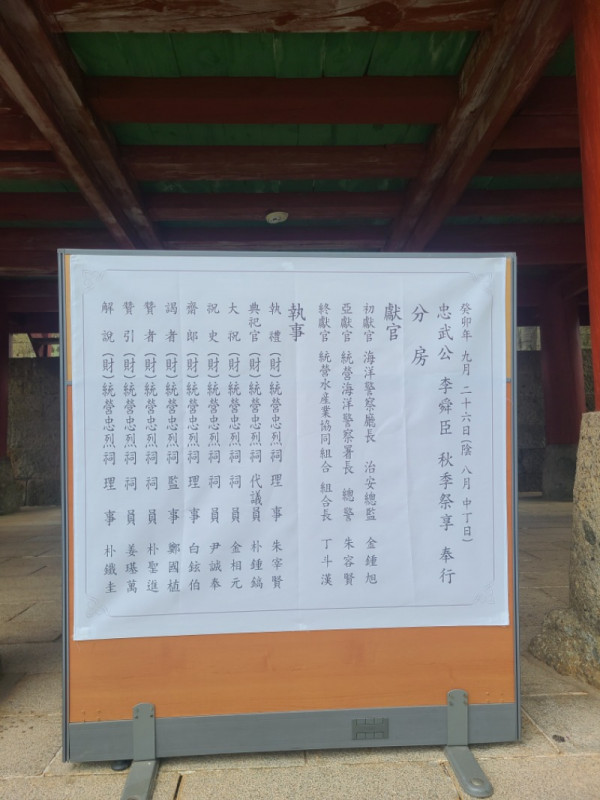 癸卯年 九月 二十六日(陰 八月 中丁日)
忠武公 李舜臣 秋季祭享 奉行
分房
獻官
初獻官 海洋警察廳長 治安總監 金鍾旭
亞獻官 統營海洋警察署長 總警 朱容賢
終獻官 統營水産業協同組合 組合長 丁斗漢
執事
執禮 (財)統營忠烈祠 理事 朱宰賢
典祀官 (財)統營忠烈祠 代議員 朴鍾鎬
大祝 (財)統營忠烈祠 祠員 金相元
祝史 (財)統營忠烈祠 祠員 尹誠奉
齋郞 (財)統營忠烈祠 理事 白鉉伯
謁者 (財)統營忠烈祠 監事 鄭國植
贊者 (財)統營忠烈祠 祠員 朴聖進
贊引 (財)統營忠烈祠 祠員 姜堪萬
解說 (財)統營忠烈祠 理事 朴鐵圭